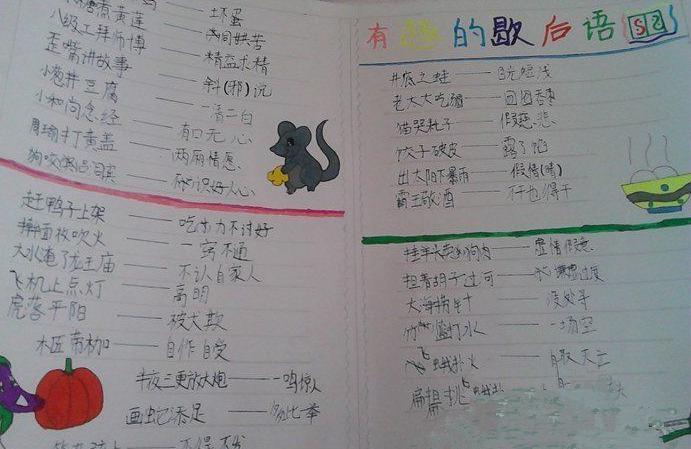 煮黄莲——同苦
八级工拜师傅——精益求精
歪嘴讲故事——斜(邪)说
小葱拌豆腐——一清二白
小和尚念经——有口无心
周瑜打黄盖——两厢情愿
狗咬吕洞宾——不识好人心
赶鸭子上架——吃力不讨好
擀面杖吹火——一窍不通
大水淹了龙王庙——不认自家人
飞机上点灯——高明
虎落平阳——被犬欺
木匠带枷——自作自受
半夜三更放大炮——一鸣惊人
画蛇添足——多此一举
不得不发
有趣的歇后语 52
井底之蛙——目光短浅
老太太吃——回回
猫哭耗子——假慈悲
饺子破皮——露了馅
出太阳下暴雨——假情(晴)
霸王敬酒——不干也得干
挂羊头卖狗肉——虚情假意
担着胡子过河——过度
大海捞针——没处寻
竹篮打水——一场空
飞蛾扑火——自取灭亡
扁担挑